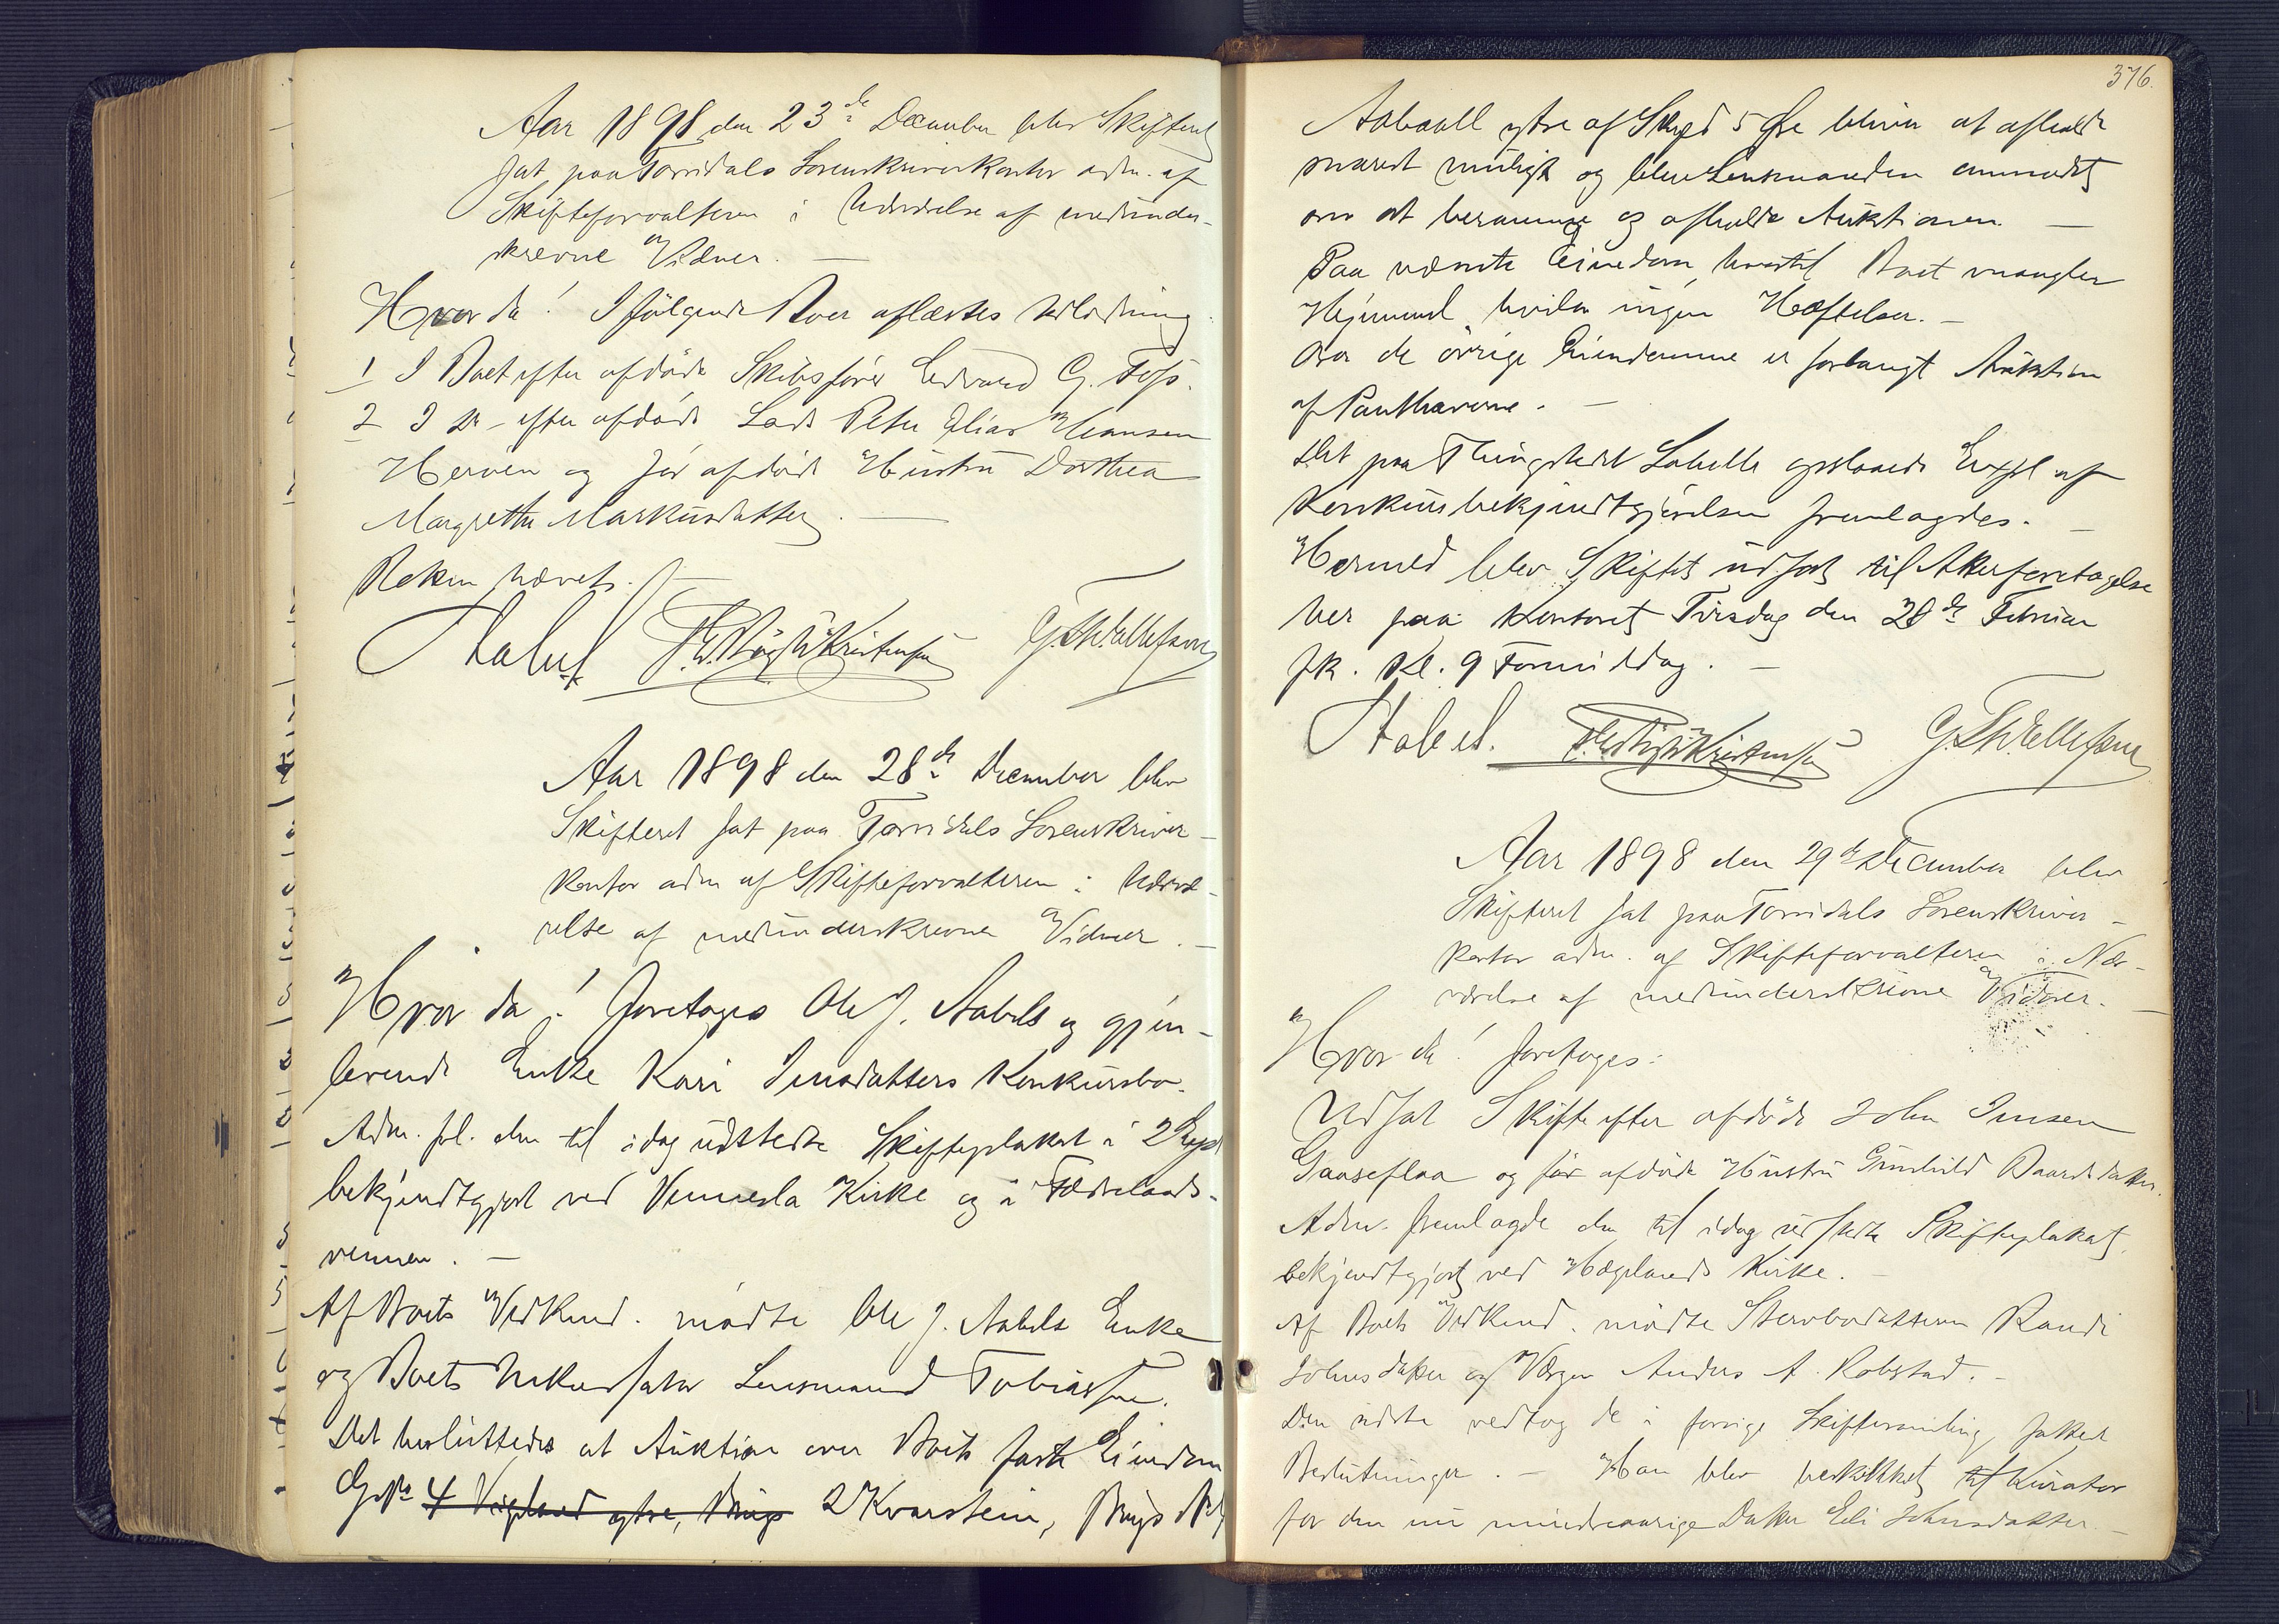 Aar 1898 den 23de December blev Skifteret
sat paa Torridals Sorenskriverkontor adm. af
Skifteforvalteren i Nærværelse af medunder-
skrevne Vidner. —
Hvor da! I følgende Boer aflæstes Udlodning
1 I Boet efter afdøde Skibsfører Edvard G. Foss.
2 I do - efter afdøde Lods Peter Elias Hansen
og før afdøde Hustru Dorthea
Margrethe Markusdatter. —
Retten hævet. —
Stabel
G. Th. Ellefsen
Aar 1898 den 28de December blev
Skifteret sat paa Torridals Sorenskriver-
kontor adm af Skifteforvalteren i Nærvæ-
relse af medunderskrevne Vidner. —
Hvor da! foretoges Ole J. Aabels og gjen-
levende Enke Kari Jensdatters Konkursbo.
Adm. frl. den til idag udstedte Skifteplakat i 2 Expl
bekjendtgjort ved Vennesla Kirke og i Fædrelands-
vennen. —
Af Boets Vedkend. mødte Ole J. Aabels Enke
og Boets Lensmand Tobiassen.
Det besluttedes at Auktion over Boets faste Eiendom
G. No 4 Vigeland ytre, Brugs 2 Kvarstein, Brugs No
376.
Aabaall ytre af Skyld 5 Øre bliver at afholde
snarest muligt og blev Lensmanden anmodet
om at beramme og afholde Auktionen. —
Paa nævnte Eiendom, hvortil Boet mangler
Hjemmel hviler ingen Hæftelser. —
Over de øvrige Eiendomme er forlangt Auktion
af Panthaverne. —
Det paa Thingstedet opslaaede Expl af
Konkursbekjendtgjørelsen fremlagdes. —
Hermed blev Skiftet udsat til Atterforetagelse
her paa Kontoret Tirsdag den 28de Februar
f.k. Kl. 9 Formiddag. —
Stabel.
G. Th. Ellefsen
Aar 1898 den 29de December blev
Skifteret sat paa Torridals Sorenskriver-
kontor adm. af Skifteforvalteren i Nær-
værelse af medunderskrevne Vidner. —
Hvor da! foretoges:
Udsat Skifte efter afdøde John Jensen
Gaaseflaa og før afdøde Hustru Gunhild Baardsdatter.
Adm. fremlagde den til idag udstedte Skifteplakat,
bekjendtgjort ved Hægelands Kirke. —
Af Boets Vedkend. mødte Stervbodatteren Randi
Johnsdatter og Værgen Anders A. Robstad. —
Den sidste vedtog de i forrige Skiftesamling fattede
Beslutninger. — Han blev beskikket til Kurator
for den nu mindreaarige Datter Eli Johnsdatter. —